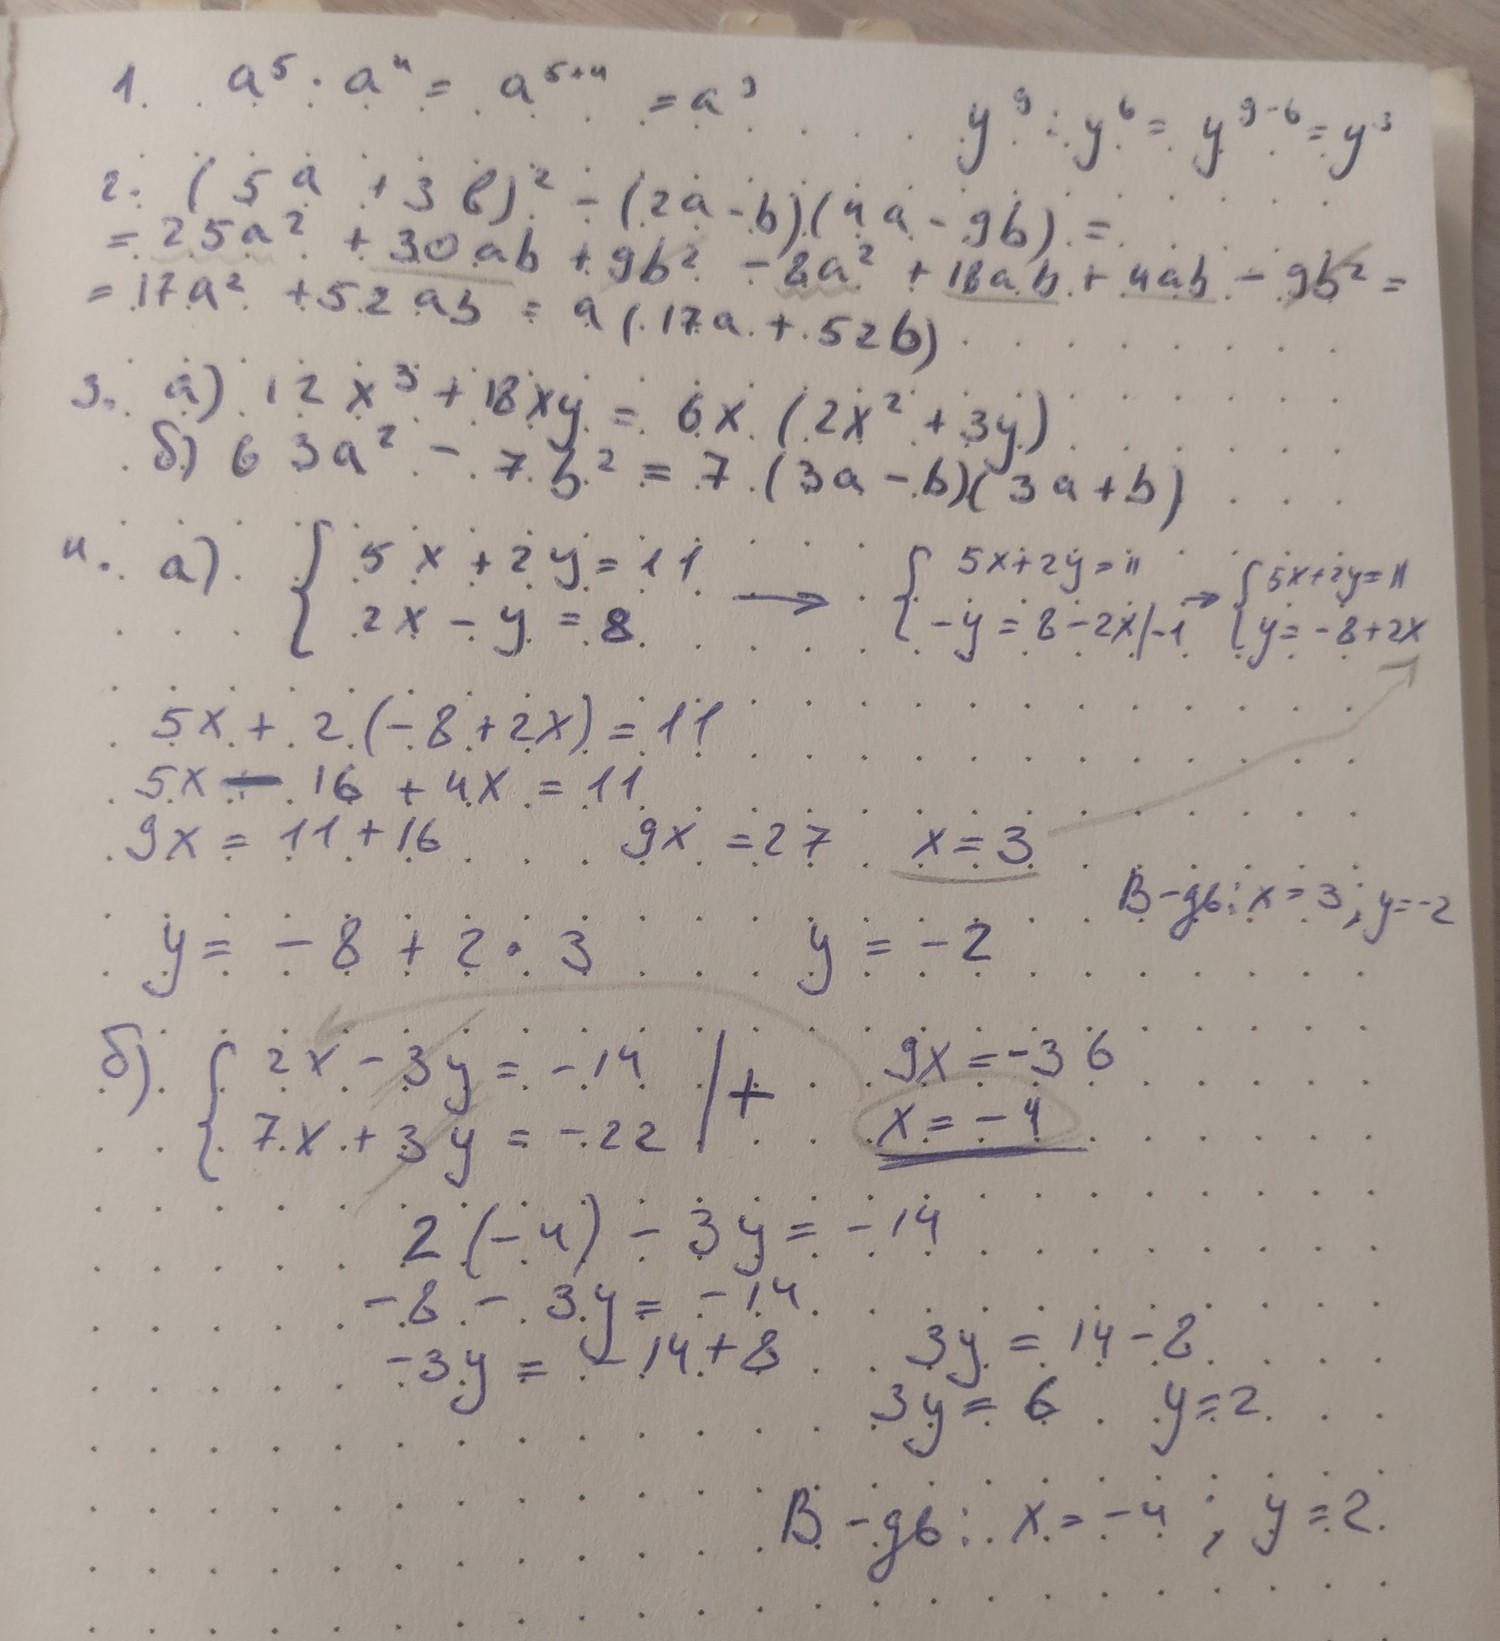 1. a⁵ · a⁴ = a⁵⁺⁴ = a⁹ y⁹ : y⁶ = y⁹⁻⁶ = y³
2. (5a + 3b)² - (2a - b)(4a - 9b) =
= 25a² + 30ab + 9b² - 8a² + 18ab + 4ab - 9b² =
= 17a² + 52ab = a(17a + 52b)
3. а) 12x³ + 18xy = 6x (2x² + 3y)
б) 63a² - 7b² = 7 (3a - b)(3a + b)
4. а) { 5x + 2y = 11 → { 5x + 2y = 11 → { 5x + 2y = 11
2x - y = 8 -y = 8 - 2x | -1 y = -8 + 2x
5x + 2(-8 + 2x) = 11
5x - 16 + 4x = 11
9x = 11 + 16 9x = 27 x = 3
В-дь: x = 3; y = -2
y = -8 + 2 · 3 y = -2
б) { 2x - 3y = -14 | + 9x = -36
7x + 3y = -22 x = -4
2(-4) - 3y = -14
-8 - 3y = -14
-3y = -14 + 8 3y = 14 - 8
3y = 6 y = 2
В-дь: x = -4 ; y = 2